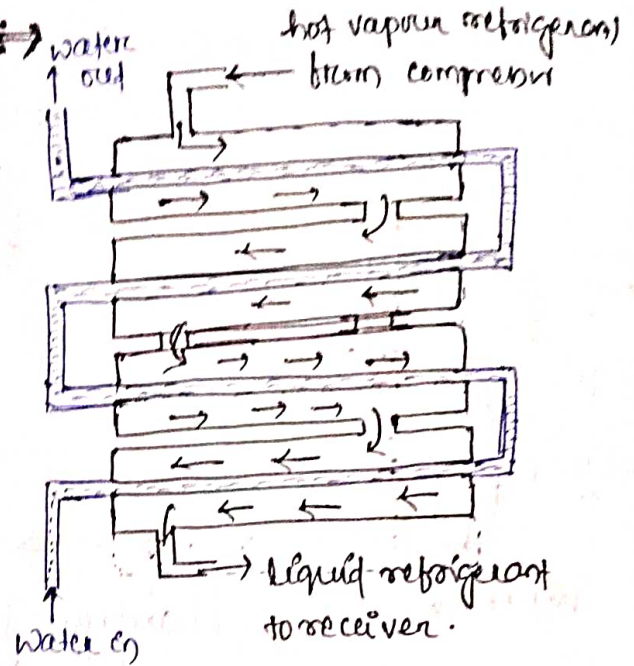 i⇒
water out
hot vapour refrigerant
from compressor
liquid refrigerant
to receiver.
water in